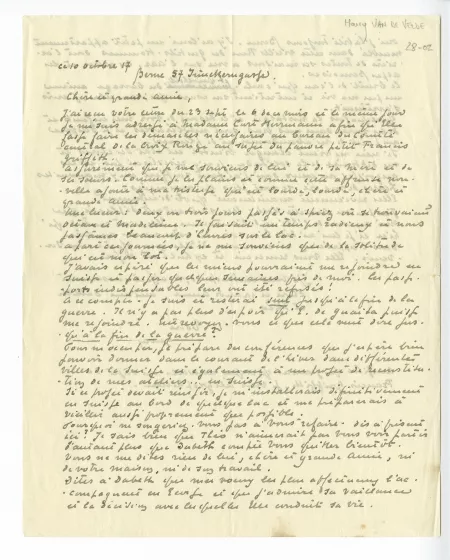 Harry VAN de VELDE
28-02
ce 10 octobre 17
Berne 37 Junkerngasse.
Chère et grande amie,
J'ai reçu votre lettre du 23 sept. le 6 de ce mois et le même jour
je me suis adressé à Madame Carl Hermann afin qu'elle
fasse faire les démarches nécessaires au bureau du Comité
central de la Croix Rouge au sujet du pauvre petit Francis
Griffith.
Assurément que je me souviens de lui et de sa mère et de
sa sœur. Comme je les plains et comme cette affreuse nou-
velle ajoute à ma tristesse qui est lourde, lourde, chère et
grande amie.
Une lueur! Deux ou trois jours passés à Spiez où se trouvaient
et Madeleine. Il faisait un temps radieux et nous
passâmes beaucoup d'heures sur le lac.
à part ces journées, je ne me souviens que de la solitude
qui est mon lot.
J'avais espéré que les miens pourraient me rejoindre en
Suisse et passer quelques semaines près de moi. Les passe-
ports indispensables leur ont été refusés!
A ce compte - je suis et resterai seul jusqu'à la fin de la
guerre. Il n'y a pas plus d'espoir qu'il de quoi la puisse
me rejoindre. vous ce que cela veut dire jus-
qu'à la fin de la guerre?
Pour m'occuper, je prépare des conférences que j'espère bien
pouvoir donner dans le courant de l'hiver dans différentes
villes de la Suisse et également à un projet de reconstitu-
tion de mes ateliers... en Suisse.
Si ce projet devait réussir, je m'installerais définitivement
en Suisse au bord de quelque lac et me préparerais à
vieillir aussi proprement que possible.
Pourquoi ne songeriez-vous pas à vous refaire dès à présent
ici? Je sais bien que Théo n'aimerait pas vous voir partir
d'autant plus que Dabeth compte vous quitter bientôt.
Vous ne me dites rien de lui, chère et grande amie, ni
de votre maison, ni de son travail.
Dites à Dabeth que mes vœux les plus affectueux l'ac-
compagnent en et que j'admire sa vaillance
et la décision avec lesquelles elle conduit sa vie.